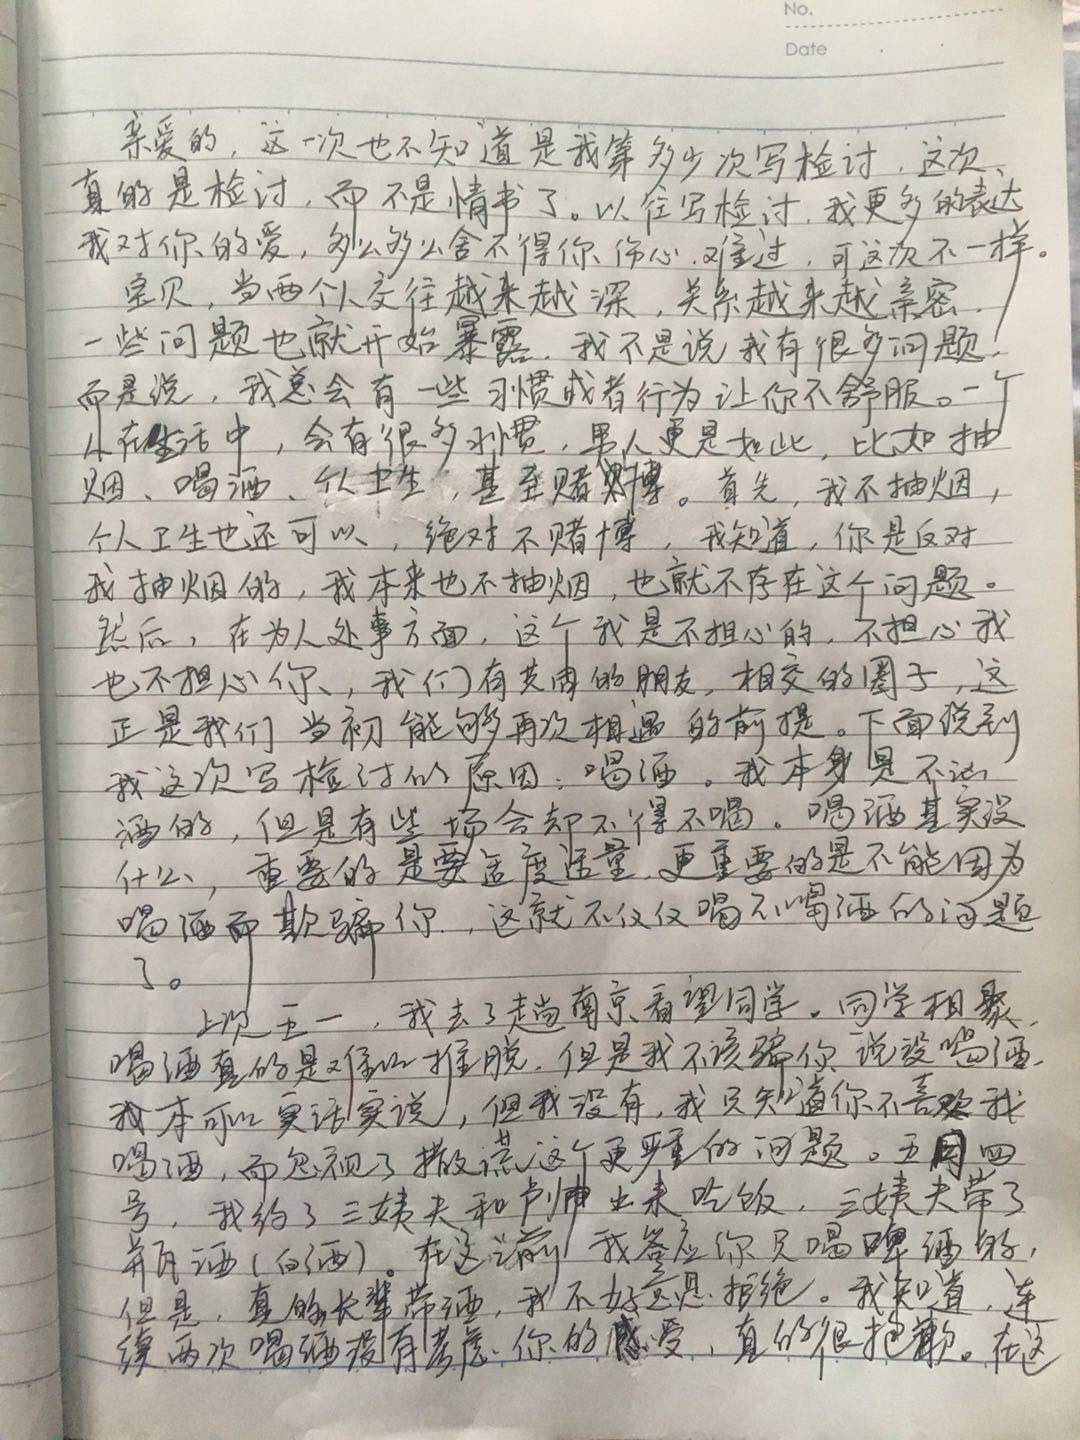 No.
Date
亲爱的，这一次也不知道是我第多少次写检讨，这次、
真的是检讨，而不是情书了。以往写检讨，我更多的表达
我对你的爱，多么多么舍不得你伤心、难过，可这次不一样。
宝贝，当两个人交往越来越深，关系越来越亲密，
一些问题也就开始暴露，我不是说我有很多问题，
而是说，我总会有一些习惯或者行为让你不舒服。一个
人在生活中，会有很多习惯，男人更是如此，比如抽
烟、喝酒、个人卫生，甚至赌博。首先，我不抽烟，
个人卫生也还可以，绝对不赌博，我知道，你是反对
我抽烟的，我本来也不抽烟，也就不存在这个问题。
然后，在为人处事方面，这个我是不担心的，不担心我
也不担心你、，我们有共同的朋友，相交的圈子，这
正是我们当初能够再次相遇的前提。下面说到
我这次写检讨的原因：喝酒。我本身是不沾
酒的，但是有些场合却不得不喝。喝酒其实没
什么，重要的是要适度适量，更重要的是不能因为
喝酒而欺骗你，这就不仅仅喝不喝酒的问题
了。
上次五一，我去了趟南京看望同学。同学相聚，
喝酒真的是难以推脱，但是我不该骗你说没喝酒，
我本可以实话实说，但我没有，我只知道你不喜欢我
喝酒，而忽视了撒谎这个更严重的问题。五月四
号，我约了三姨夫和卢帅出来吃饭，三姨夫带了
瓶酒（白酒）。在这之前，我答应你只喝啤酒的，
但是，真的长辈带酒，我不好意思拒绝。我知道，连
续两次喝酒没有考虑你的感受，真的很抱歉。在这